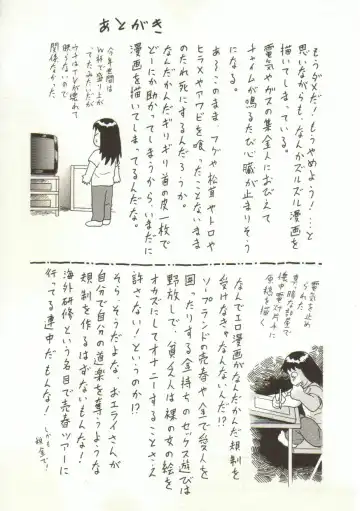 あとがき
もうダメだ!もうやめよう!…と
思いながらも、なんかズルズル漫画を
描いてしまっている。
電気やガスの集金人におびえて
チャイムが鳴るたび心臓が止まりそう
になる。
あ〜このまま、フグや松茸やトロや
ヒラメやアワビを喰ったことないまま
のたれ死にするんだろうか。
なんだかんだギリギリ首の皮一枚で
どーにか助かってしまうからいまだに
漫画を描いてしまってるんだな。
今年世間は
W杯で盛り上が
ってたみたいだが
ウチはTVが壊れて
映らないので
関係なかった。
電気を止め
られた
真っ暗な部屋で
懐中電灯片手に
原稿を描く
なんでエロ漫画がなんだかんだ規制を
受けなきゃなんないんだ!?
ソープランドの売春や金で愛人を
囲ったりする金持ちのセックス遊びは
野放しで、貧乏人は裸の女の絵を
オカズにしてオナニーすることさえ
許さない!というのか!?
そら、そうだよな、おエライさんが
自分で自分の道楽を奪うような
規制を作るはずないもんな!
海外研修という名目で売春ツアーに
行ってる連中だもんな!
しかも
税金で!